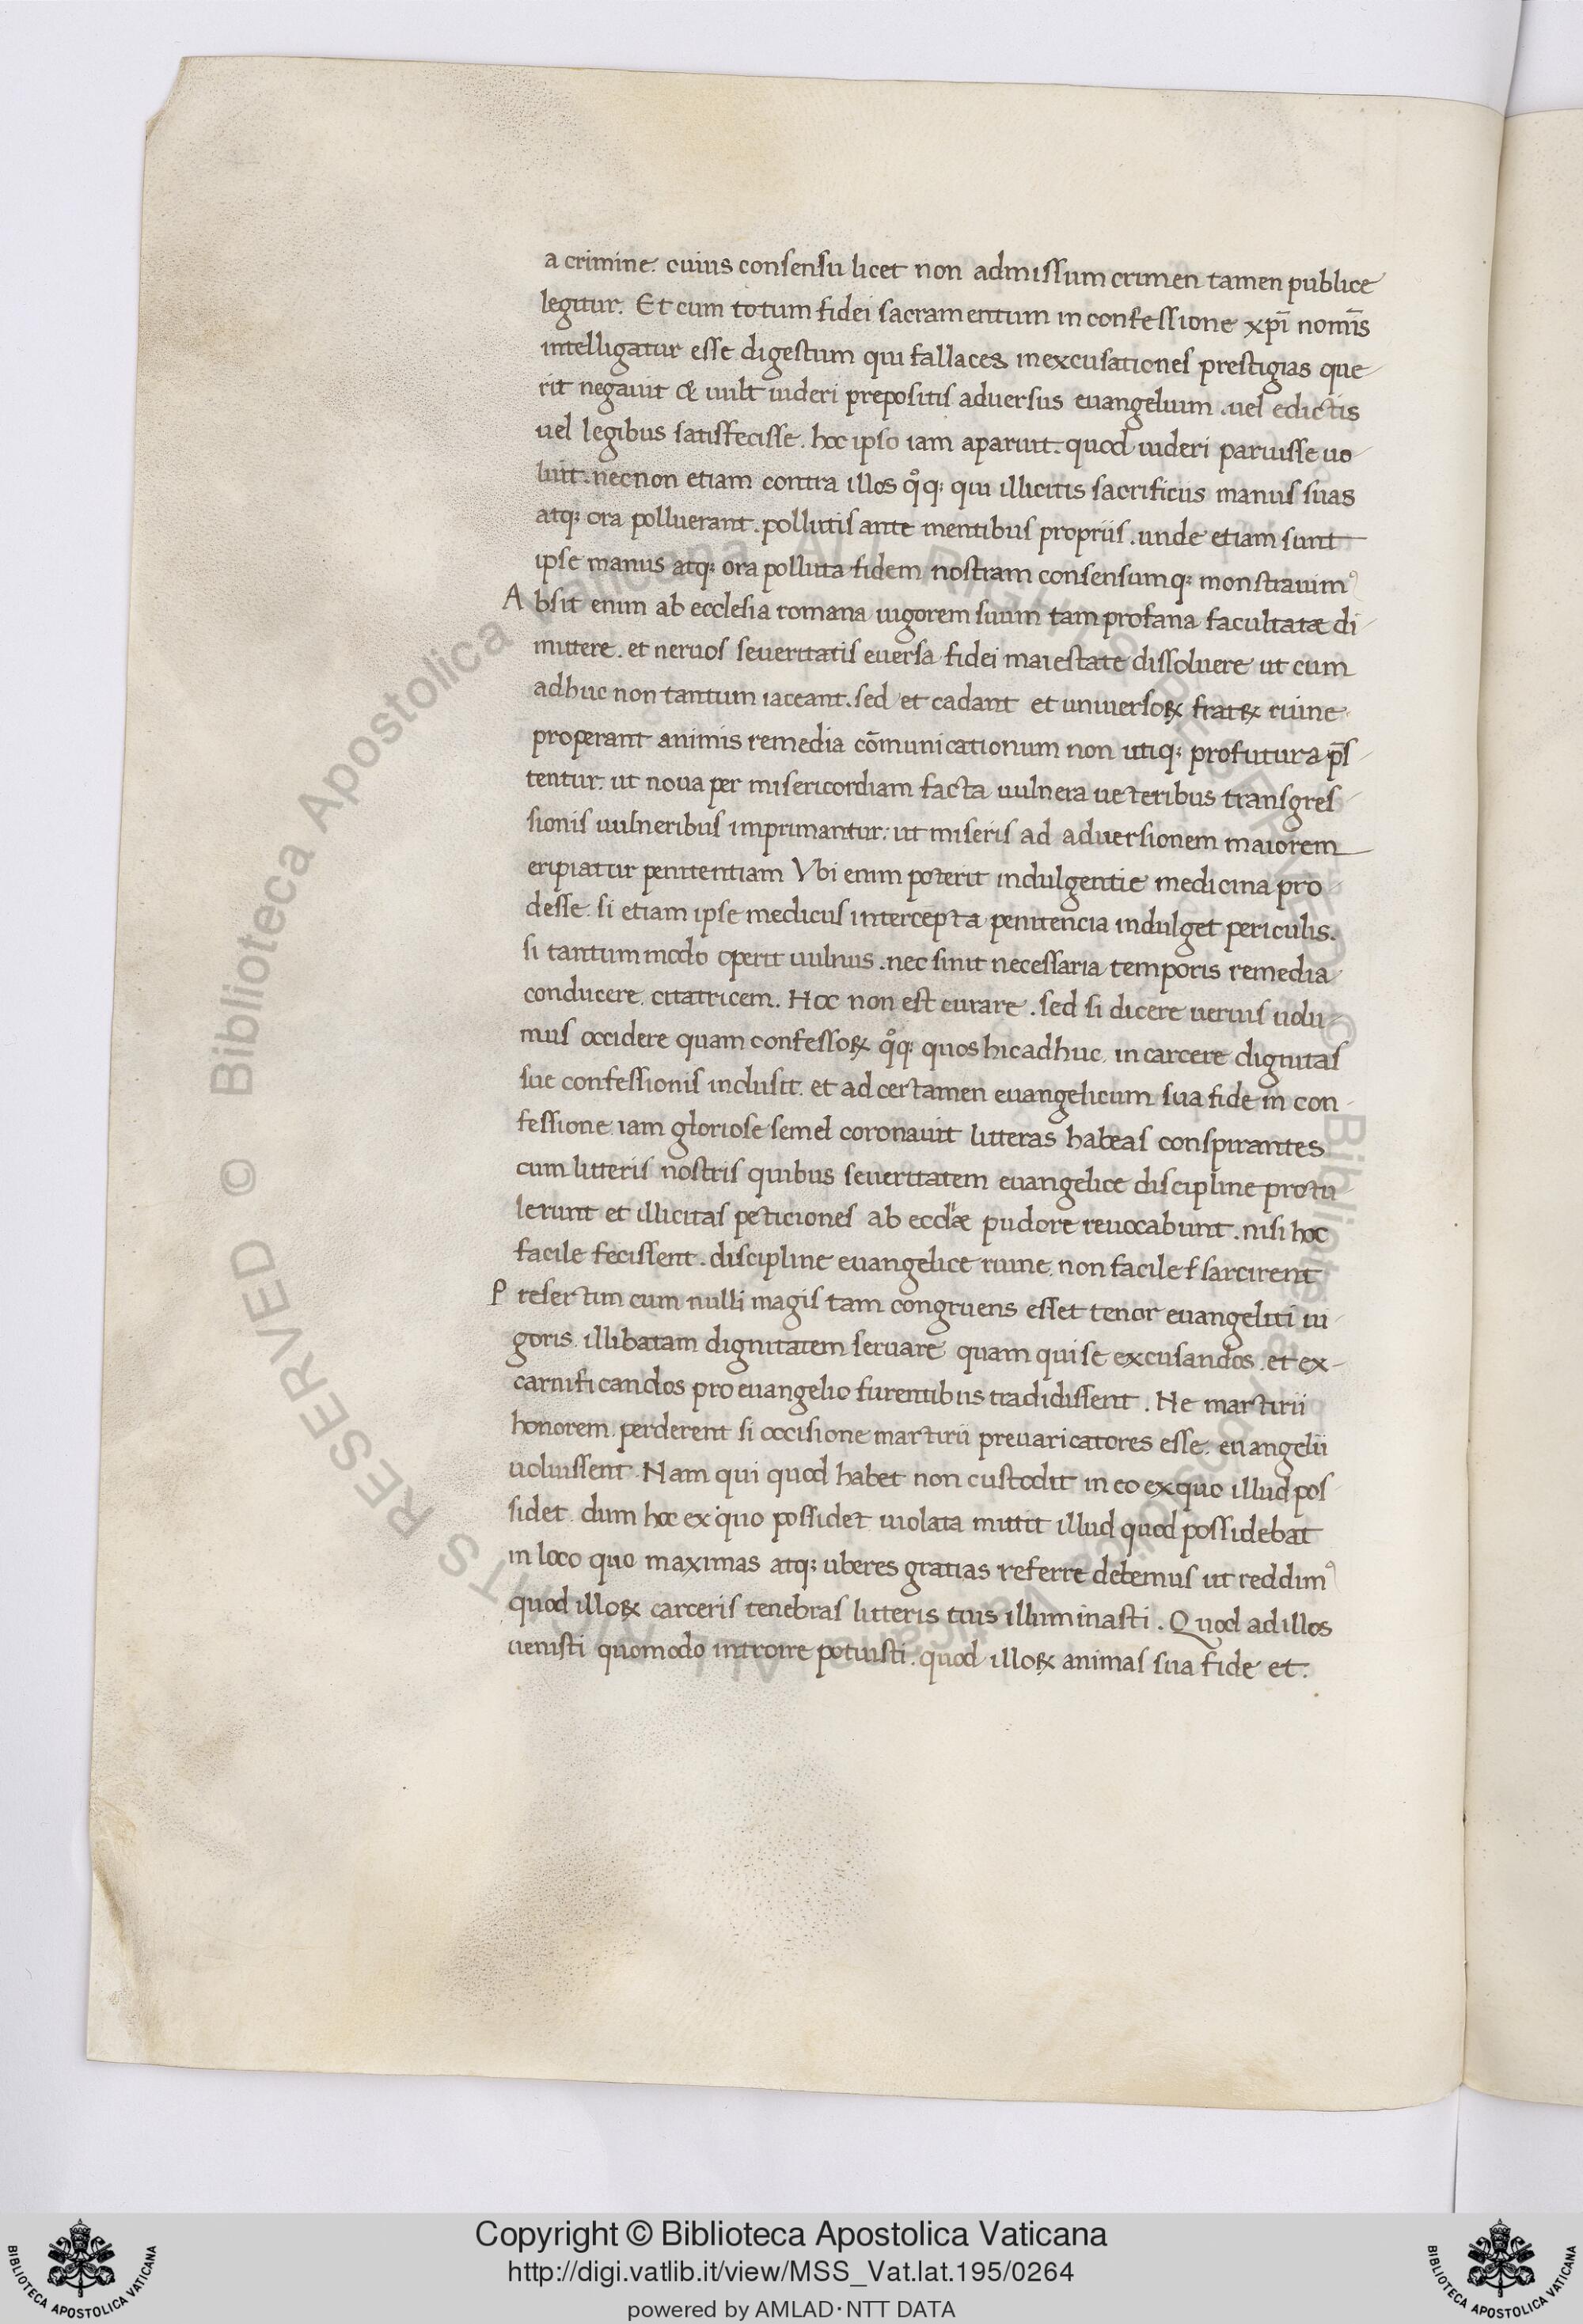 a crimine. cuius consensu licet non admissum crimen tamen publice
legitur. Et cum totum fidei sacramentum in confessione xpī nomīs
intelligatur esse digestum qui fallaces in excusationes prestigias que-
rit negauit & uult uideri prepositis aduersus euangelium. uel edictis
uel legibus satisfecisse. hoc ipso iam aparuit. quod uideri paruisse uo
luit. necnon etiam contra illos qͦq; qui illicitis sacrificiis manus suas
atq; ora polluerant. pollutis ante mentibus propriis. unde etiam sunt
ipse manus atq; ora polluta fidem nostram consensumq; monstrauimꝰ
Absit enim ab ecclesia romana uigorem suum tam profana facultatæ di-
mittere. et neruos seueritatis euersa fidei maiestate dissoluere ut cum
adhuc non tantum iaceant. sed et cadant et uniuersoꝝ fratꝝ ruine
properant animis remedia cōmunicationum non utiq; profutura p̄s-
tentur. ut noua per misericordiam facta uulnera ueteribus transgres-
sionis uulneribus imprimantur. ut miseris ad aduersionem maiorem
eripiatur penitentiam Vbi enim poterit indulgentie medicina pro
desse. si etiam ipse medicus intercepta penitencia indulget periculis.
si tantummodo operit uulnus. nec sinit necessaria temporis remedia
conducere. citatricem. Hoc non est curare. sed si dicere uerius uolu-
mus occidere quam confessoꝝ qͦq; quos hic adhuc in carcere dignitas
sue confessionis inclusit. et ad certamen euangelicum sua fide in con-
fessione iam gloriose semel coronauit litteras habeas conspirantes
cum litteris nostris quibus seueritatem euangelice discipline protu-
lerunt et illicitas peticiones ab eccłæ pudore reuocabunt. nisi hoc
facile fecissent. discipline euangelice ruine. non facile sarcirent
Presertim cum nulli magis tam congruens esset tenor euangeliti ui-
goris. illibatam dignitatem seruare quam qui se excusandos. et ex-
carnificandos pro euangelio furentibus tradidissent. Ne martirii
honorem. perderent si occisione martirii preuaricatores esse. euangelii
uoluissent. Nam qui quod habet non custodit in eo ex quo illud pos-
sidet. dum hoc ex quo possidet uiolata mittit illud quod possidebat
in loco quo maximas atq; uberes gratias referre debemus ut reddimꝰ
quod illoꝝ carceris tenebras litteris tuis illuminasti. Quod ad illos
uenisti quomodo introire potuisti. quod illoꝝ animas sua fide et.
© Biblioteca Apostolica Vaticana ALL RIGHTS RESERVED © Biblioteca Apostolica Vaticana ALL RIGHTS RESERVED
Copyright © Biblioteca Apostolica Vaticana
http://digi.vatlib.it/view/MSS_Vat.lat.195/0264
powered by AMLAD·NTT DATA
BIBLIOTECA APOSTOLICA VATICANA
BIBLIOTECA APOSTOLICA VATICANA